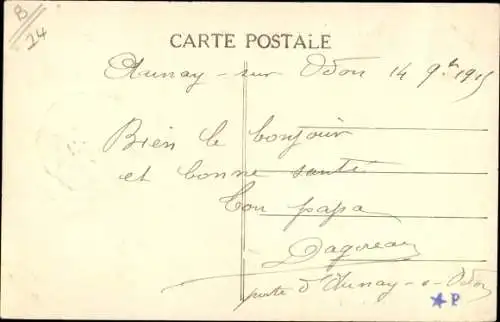 B
24
CARTE POSTALE
Aunay-sur Odon 14 9bre 1915
Bien le bonjour
et bonne santé
Ton papa
Dagoreau
poste d'Aunay-s-Odon
★ P